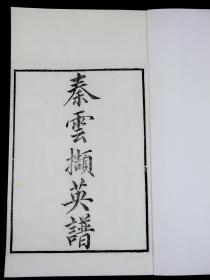 秦雲擷英譜